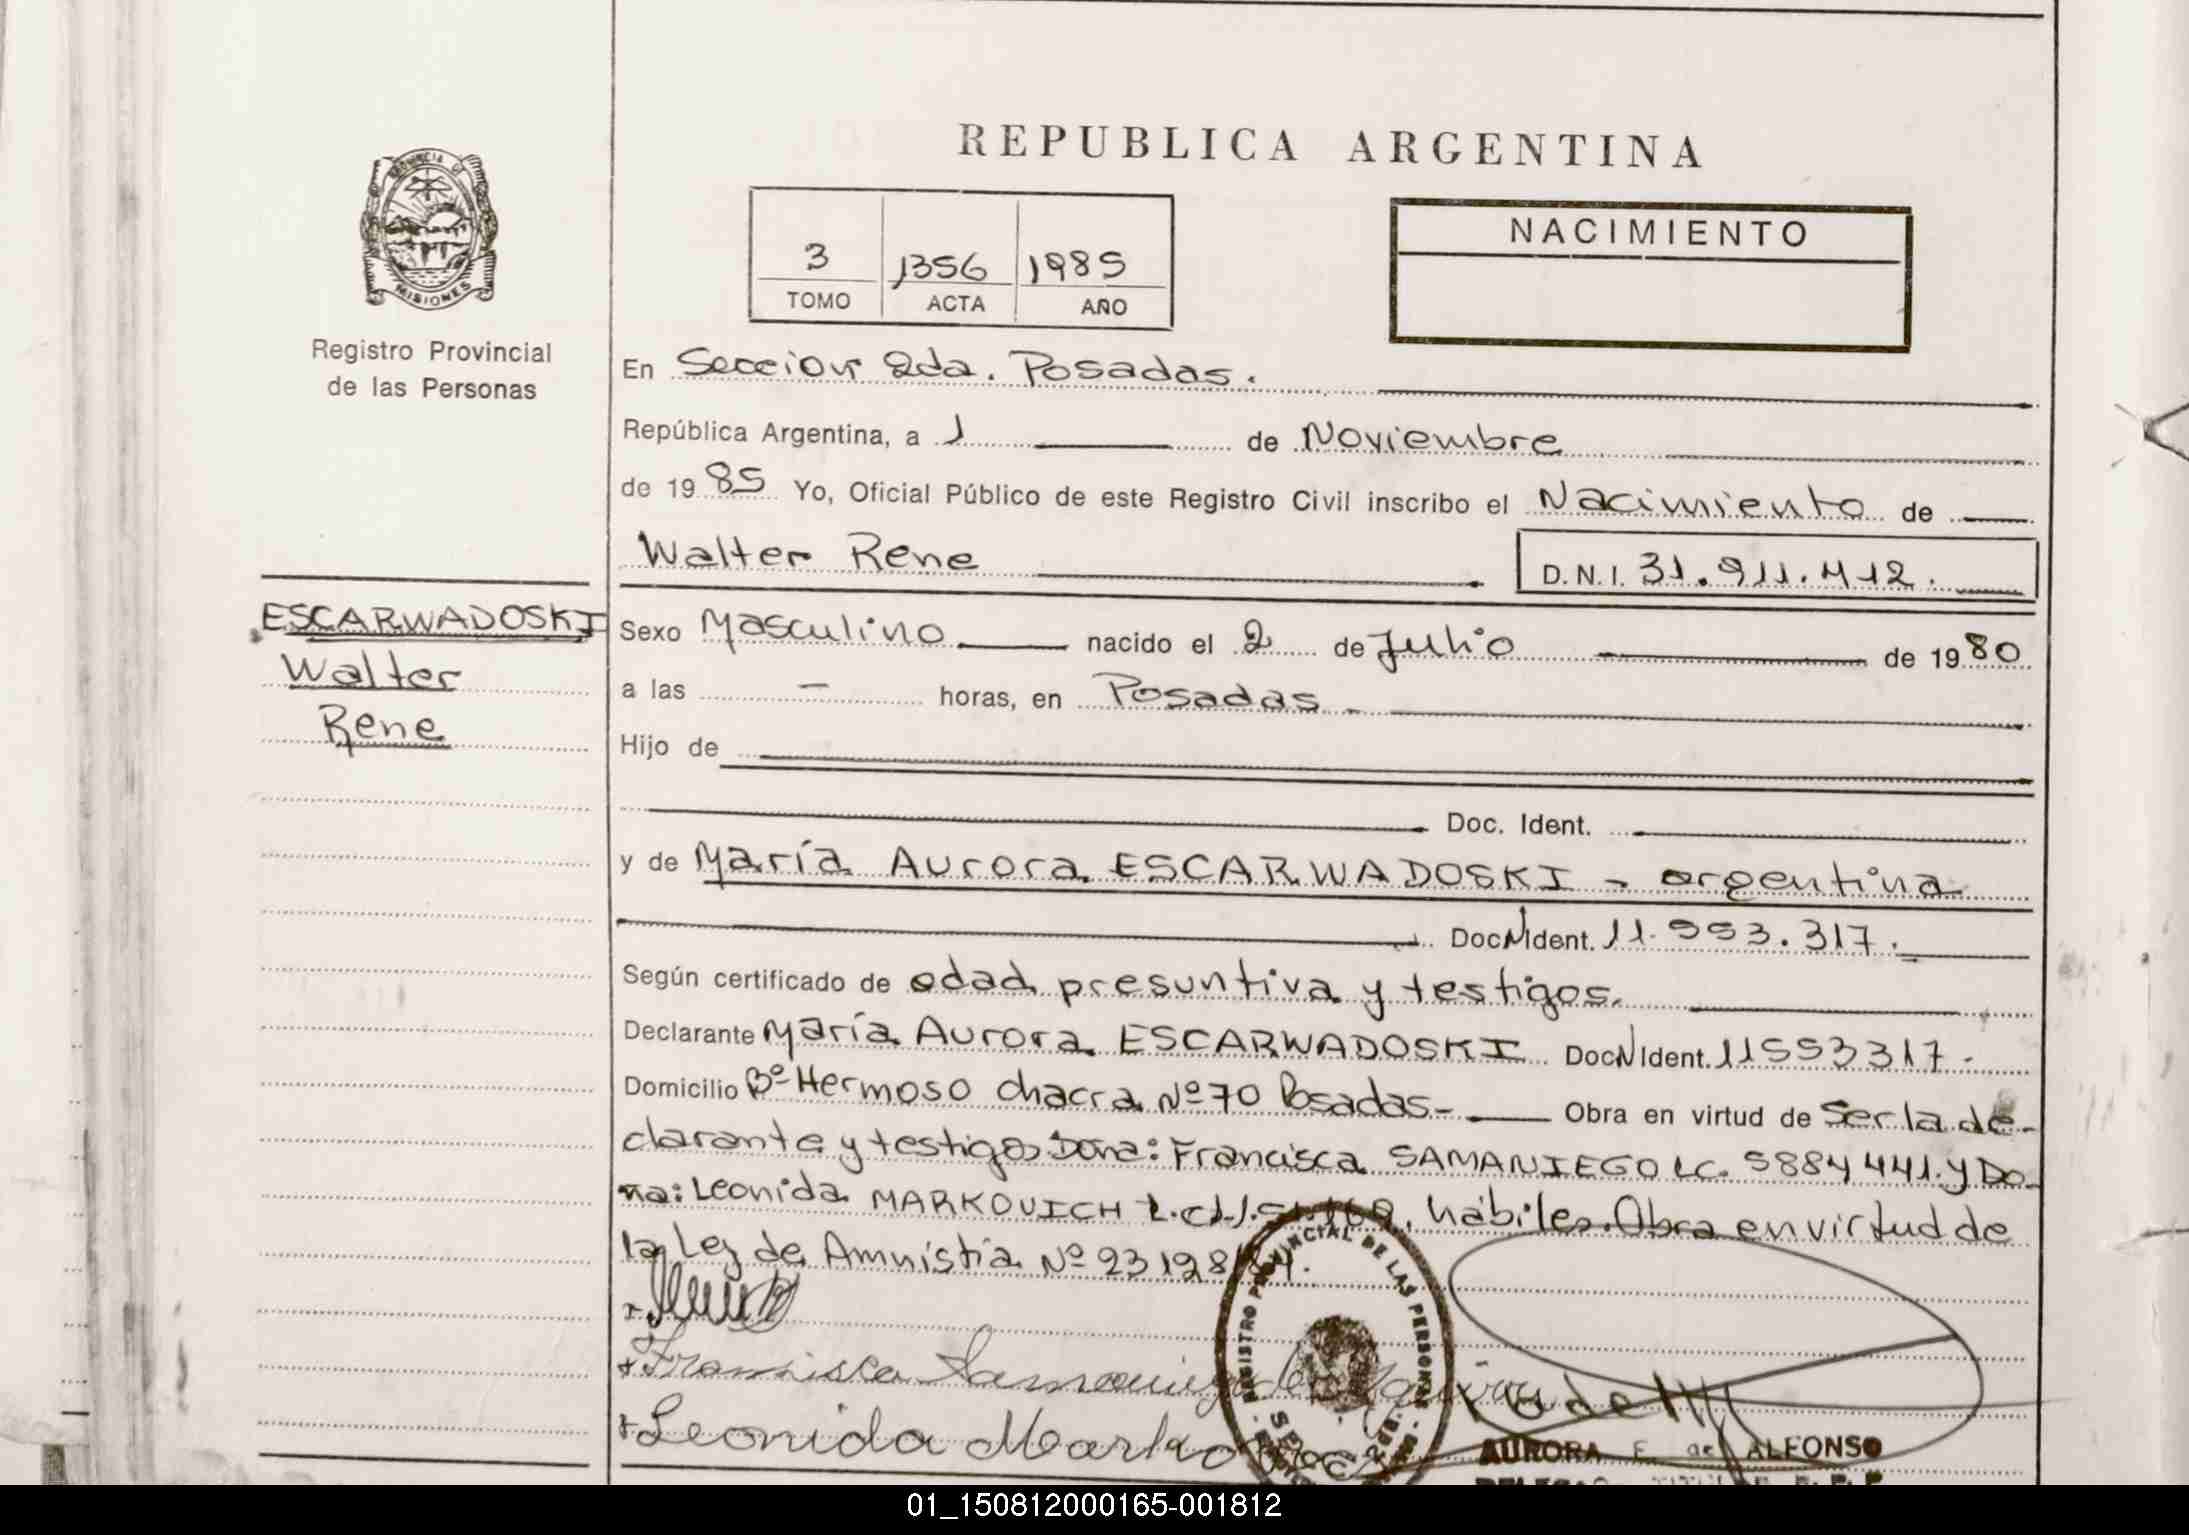 REPUBLICA ARGENTINA
PROVINCIA DE
MISIONES
Registro Provincial
de las Personas
3 1356 1985
TOMO ACTA AÑO
NACIMIENTO
En Seccion 2da. Posadas.
República Argentina, a 1 de Noviembre
de 1985 Yo, Oficial Público de este Registro Civil inscribo el Nacimiento de
Walter Rene D.N.I. 31.911.412.
ESCARWADOSKI
Walter
Rene
Sexo Masculino nacido el 2 de Julio de 1980
a las - horas, en Posadas
Hijo de
Doc. Ident.
y de María Aurora ESCARWADOSKI - argentina
Doc N Ident. 11.993.317.
Según certificado de edad presuntiva y testigos.
Declarante María Aurora ESCARWADOSKI Doc N Ident. 11993317.
Domicilio Bº Hermoso chacra Nº 70 Posadas- Obra en virtud de Ser la de-
clarante y testigos Doña: Francisca SAMANIEGO LC. 5884441. y Do-
ña: Leonida MARKOVICH hábiles. Obra en virtud de
la Ley de Amnistia Nº 23128/84.
Francisca Samaniego de
Leonida Markovich
REGISTRO PROVINCIAL DE LAS PERSONAS
AURORA E. de ALFONSO
01_150812000165-001812